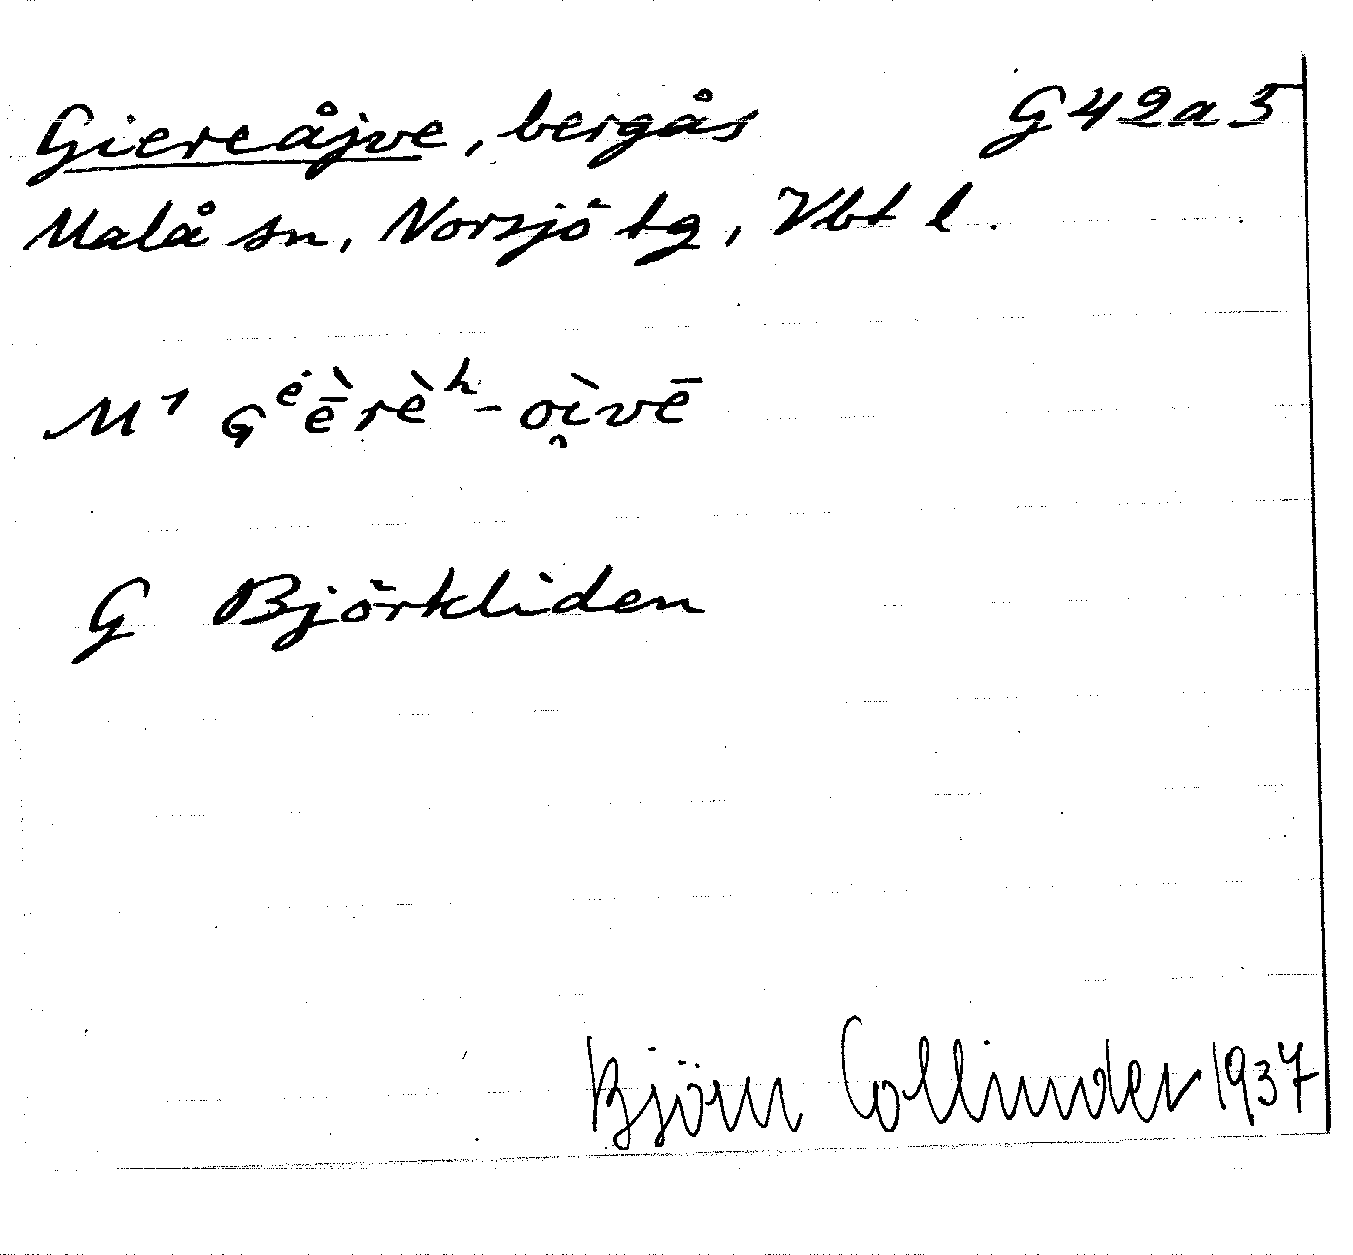 Giereåjve, bergås G42a5
Malå sn, Norsjö tg, Vbt l.
M¹ Gᵉḕrèʰ-oì̯vē
G Björkliden
Björn Collinder 1937